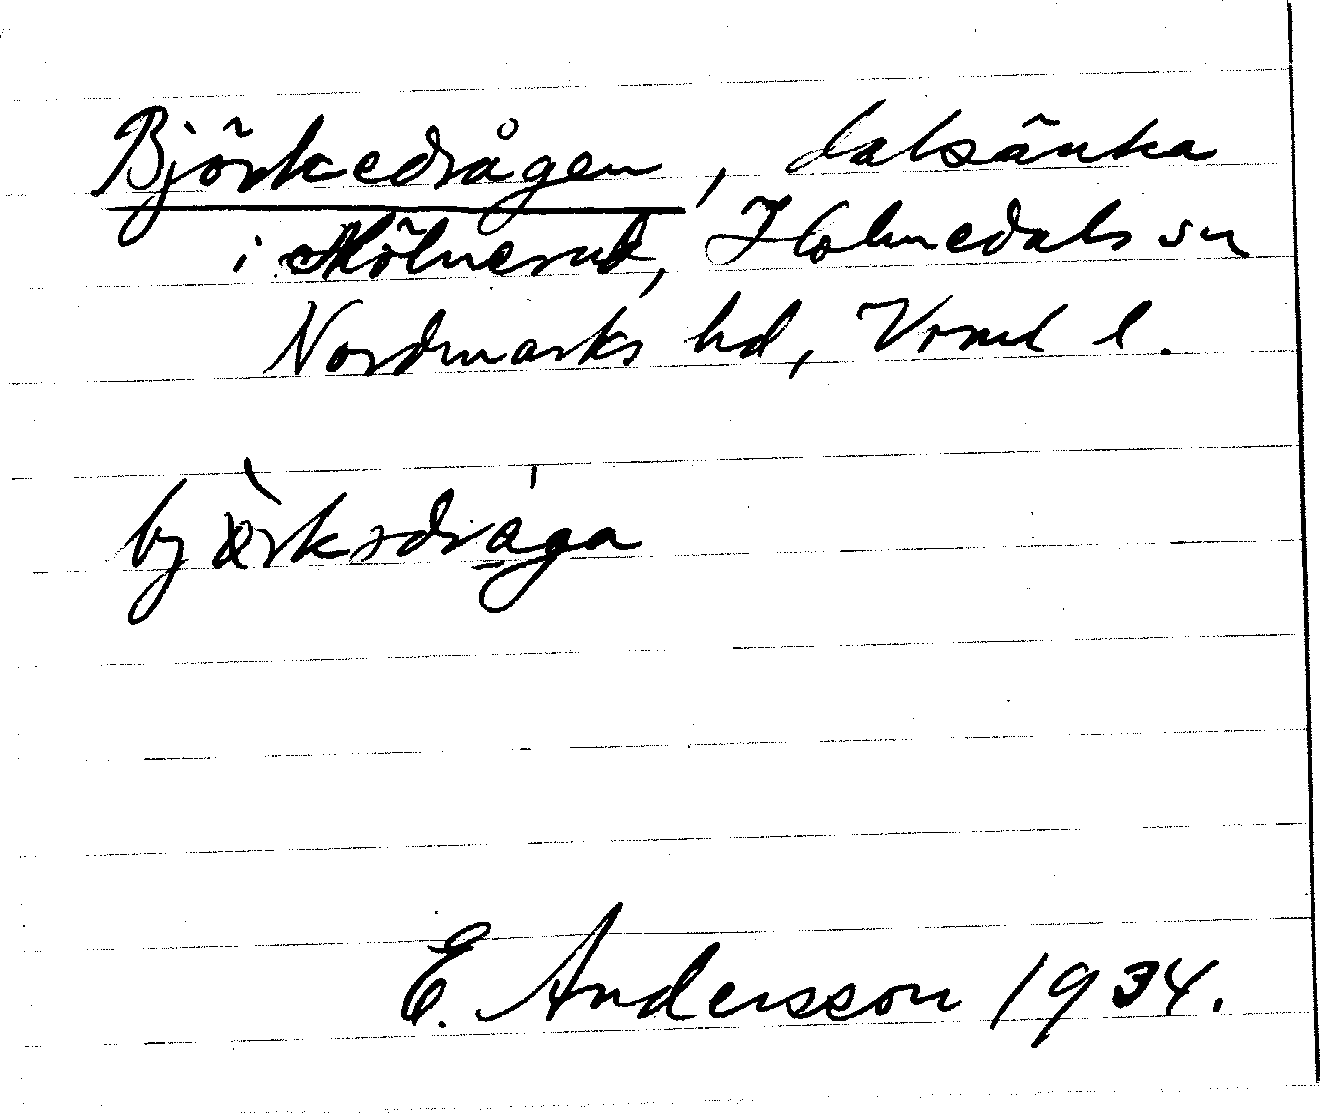 Björkedrågen, dalsänka
i Mölnerud, Holmedals sn
Nordmarks hd, Vrml l.
bjö̀rkədrága
E. Andersson 1934.